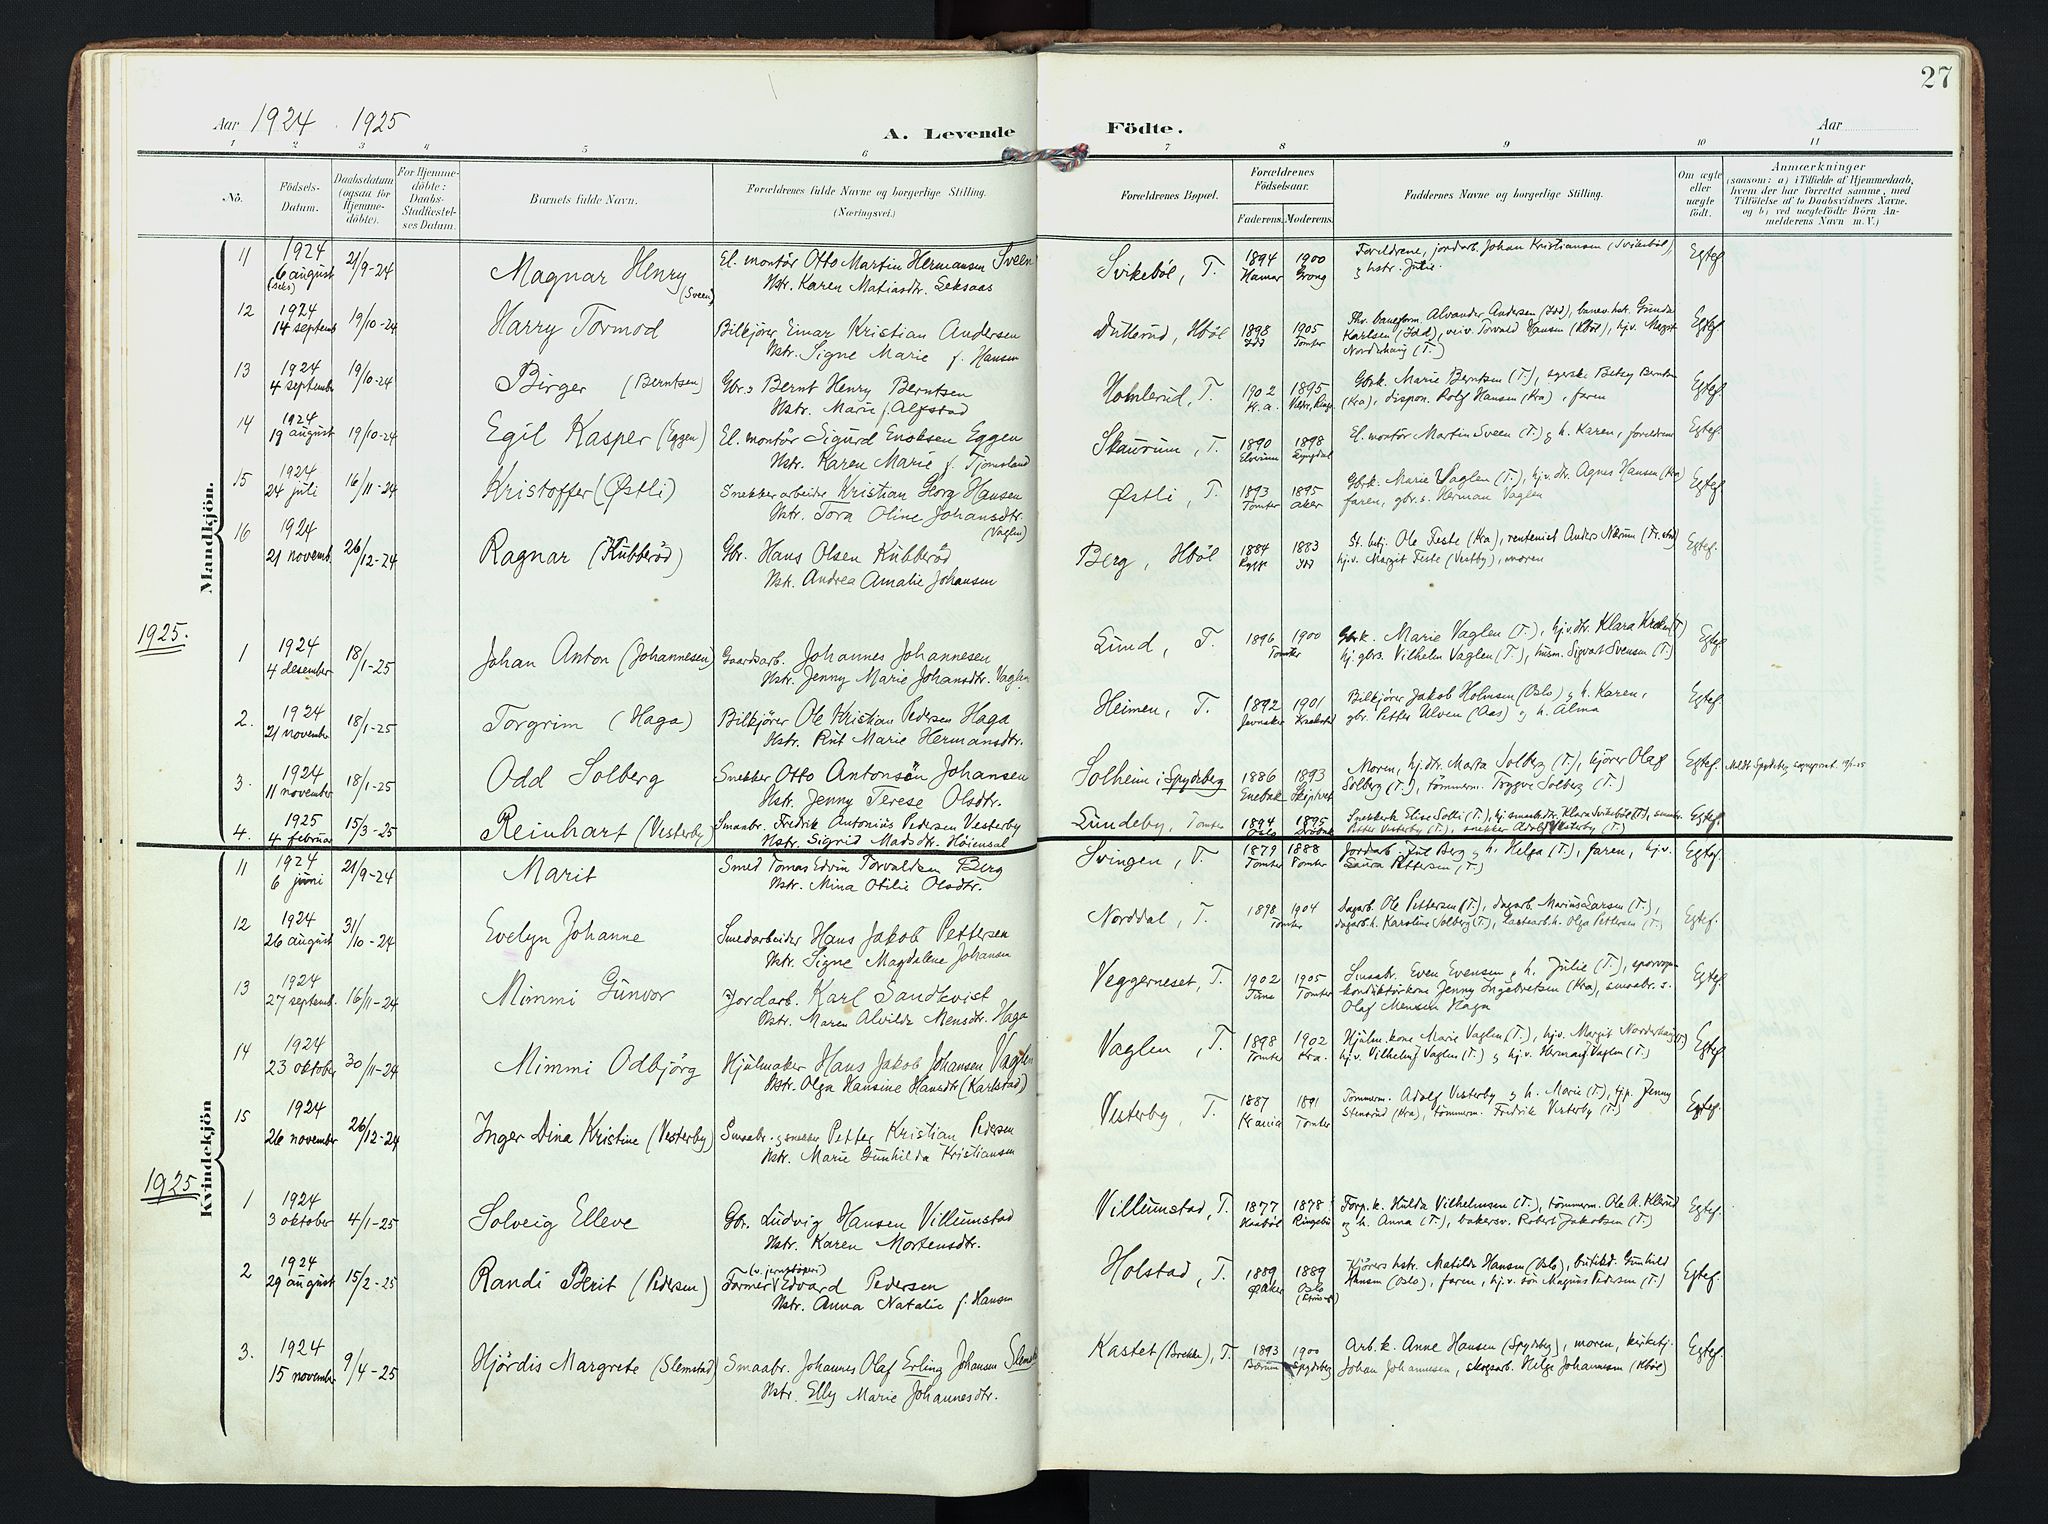 27
Aar 1924 . 1925
A. Levende Födte.
Aar
1 2 3 4 5 6 7 8 9 10 11
No.
Födsels-Datum.
Daabsdatum (ogsaa for Hjemmedöbte).
For Hjemmedöbte: Daabs-Stadfæstelses Datum.
Barnets fulde Navn.
Forældrenes fulde Navne og borgerlige Stilling.
(Næringsvei.)
Forældrenes Bopæl.
Forældrenes Födselsaar.
Faderens. Moderens.
Faddernes Navne og borgerlige Stilling.
Om ægte eller uægte födt.
Anmærkninger
(saasom: a) i Tilfælde af Hjemmedaab, hvem der har forrettet samme, med Tilföielse af to Daabsvidners Navne, og b) ved uægtefödte Börn Anmelderens Navn m. V.)
Mandkjön.
11 1924 6 august (seks) 21/9-24 Magnar Henry (Sveen) El. montör Otto Martin Hermansen Sveen Svikeböl, T. 1894 Hamar 1900 Grong Foreldrene, jordarb. Johan Kristiansen (Svikeböl), Egtef.
Hstr. Karen Matiasdtr. Seksaas g hstr. Julie.
12 1924 14 septemb 19/10-24 Harry Tormod Bilkjörer Einar Kristian Andersen Dullerud, Hböl 1898 Idd 1905 Tomter Fhv. baneform. Alvander Andersen (Idd), banev. hst. Gunda Egtef
Hstr. Signe Marie f. Hansen Karlsen (Idd), veiv. Torvald Hansen (Hböl), hj.v. Margit
(T.)
13 1924 4 september 19/10-24 Birger (Berntsen) Gbr.s Bernt Henry Berntsen Homlerud, T. 1902 Kr.a. 1895 Gbrk. Marie Berntsen (T.), syerske Betzy Berntsen Egtef.
Hstr. Marie f. Alfstad (Kra), dispon. Rolf Hansen (Kra), faren
14 1924 19 august 19/10-24 Egil Kasper (Eggen) El. montör Sigurd Enoksen Eggen Skaurum, T. 1890 Elverum 1898 Lyngdal El. montör Martin Sveen (T.) g h. Karen, foreldrene Egtef.
Hstr. Karen Marie f. Tjomsland
15 1924 24 juli 16/11-24 Kristoffer (Østli) Snekkerarbeide Kristian Georg Hansen Østli, T. 1893 Tomter 1895 Aker Gbrk. Marie Vaglen (T.), hj.v. dtr. Agnes Hansen (Kra Egtef.
Hstr. Tora Oline Johansdtr. (Vaglen) faren, gbr. s. Herman Vaglen
16 1924 21 novemb. 26/12-24 Ragnar (Kubberöd) Gbr. Hans Olsen Kubberöd Berg, Hböl 1884 Rygge 1883 Idd St. btj. Ole Feste (Kra), renteniet Anders Nærum (Fr.stad) Egtef.
Hstr. Andrea Amalie Johansen hj.v. Margit Feste (Vestby), moren
1925.
1 1924 4 desember 18/1-25 Johan Anton (Johannesen) Gaardsarb. Johannes Johannesen Lund, T. 1896 1900 Tomter Gbrk. Marie Vaglen (T.), hj.v. dtr. Klara Kroken (T) Egtef.
Hstr. Jenny Marie Johansdtr. Vaglen hj. gbrs. Vilhelm Vaglen (T.), husm. Sigvart Svensen (T.)
2. 1924 21 november 18/1-25 Torgrim (Haga) Bilkjører Ole Kristian Pedersen Haga Heimen, T. 1892 Jevnaker 1901 Kraakstad Bilkjører Jakob Holmsen (Oslo) g h. Karen, Egtef.
Hstr. Rut Marie Hermansdtr. gbr. Petter Ulven (Aas) g h. Alma
3. 1924 11 november 18/1-25 Odd Solberg Snekker Otto Antonsön Johansen Solheim i Spydeberg 1886 Enebak 1893 Skiptvet Moren, hj.dtr. Marta Solberg (T.), kjörer Olaf Egtef.
Hstr. Jenny Terese Olsdtr. Solberg (T.), tömmerm. Trygve Solberg (T.)
4. 1925 4 februar 15/3-25 Reinhart (Vesterby) Smaabr. Fredrik Antonius Pedersen Vesterby Lundeby, Tomter 1894 Oslo 1895 Snekkerk. Elise Solli (T.), hj. smaabr.dtr. Klara Svikeböl (T.), smaabr. Egtef.
Hstr. Sigrid Madsdtr. Höiensal Petter Vesterby (T.), snekker Adolf Vesterby (T.)
Kvindekjön
11 1924 6 juni 21/9-24 Marit Smed Tomas Edvin Torvaldsen Berg Svingen, T. 1879 Tomter 1888 Tomter Jordarb. Jul Berg g h. Helga (T.), faren, hj.v. Egtef.
Hstr. Mina Otilie Olsdtr. Laura Pettersen (T.)
12 1924 26 august 31/10-24 Evelyn Johanne Smedarbeider Hans Jakob Pettersen Norddal, T. 1898 1904 Tomter Dagarb. Ole Pettersen (T.), dagarb. Marius Larsen (T.), Egtef.
Hstr. Signe Magdalene Johansen dagarb.h. Karoline Solberg (T.), Lastearb.h. Olga Pettersen (T.)
13 1924 27 septemb. 16/11-24 Mimmi Gunvor Jordarb. Karl Sandkvist Veggerneset, T. 1902 1905 Tomter Smaabr. Even Evensen g h. Julie (T.), sporvogns- Egtef
Hstr. Maren Alvilde Mensdtr. Haga konduktörkone Jenny Ingebretsen (Kra), smaabr. s.
Olaf Mensen Haga
14 1924 23 oktober 30/11-24 Mimmi Odbjörg Hjulmaker Hans Jakob Johansen Vaglen Vaglen, T. 1898 Tomter 1902 Kra. Hjulm.kone Marie Vaglen (T.), hj.v. Margit Egtef.
Hstr. Olga Hansine Hansdtr. (Karlstad) hj.v. Vilhelm Vaglen (T.) g hj.v. Herman Vaglen (T.)
15 1924 26 november 26/12-24 Inger Dina Kristine (Vesterby) Smaabr. g snekker Petter Kristian Pedersen Vesterby, T. 1887 Kr.ania 1891 Tomter Tömmerm. Adolf Vesterby g h. Marie (T.), hj.p. Jenny Egtef.
Hstr. Marie Gunhilda Kristiansen Stensrud (Kra), tömmerm. Fredrik Vesterby (T.)
1925
1 1924 3 oktober 4/1-25 Solveig Elleve Gbr. Ludvig Hansen Villumstad Villumstad, T. 1877 1878 Forp.k. Hulda Vilhelmsen (T.), tömmerm. Ole A. Klerud Egtef.
Hstr. Karen Mortensdtr. g h. Anna (T.), bakersv. Robert Jakobsen (T.)
2 1924 29 august 15/2-25 Randi Berit (Pedersen) Former (v. jernstöperi) Edvard Pedersen Holstad, T. 1889 Ø Aker 1889 Oslo Kjörers hstr. Matilde Hansen (Oslo), butikd. Gunhild Egtef.
Hstr. Anna Natalie f. Hansen Hansen (Oslo), faren, hj.v. sön Magnus Pedersen (T.)
3. 1924 15 november 9/4-25 Hjördis Margrete (Slemstad) Smaabr. Johannes Olaf Erling Johansen Kastet (Brekke), T. 1893 Bærum 1900 Spydeberg Arb.k. Anne Hansen (Spydeby), moren, kirketj. Egtef.
Hstr. Elly Marie Johannesdtr. Johan Johannesen, skogarb. Helge Johannesen (Hböl)